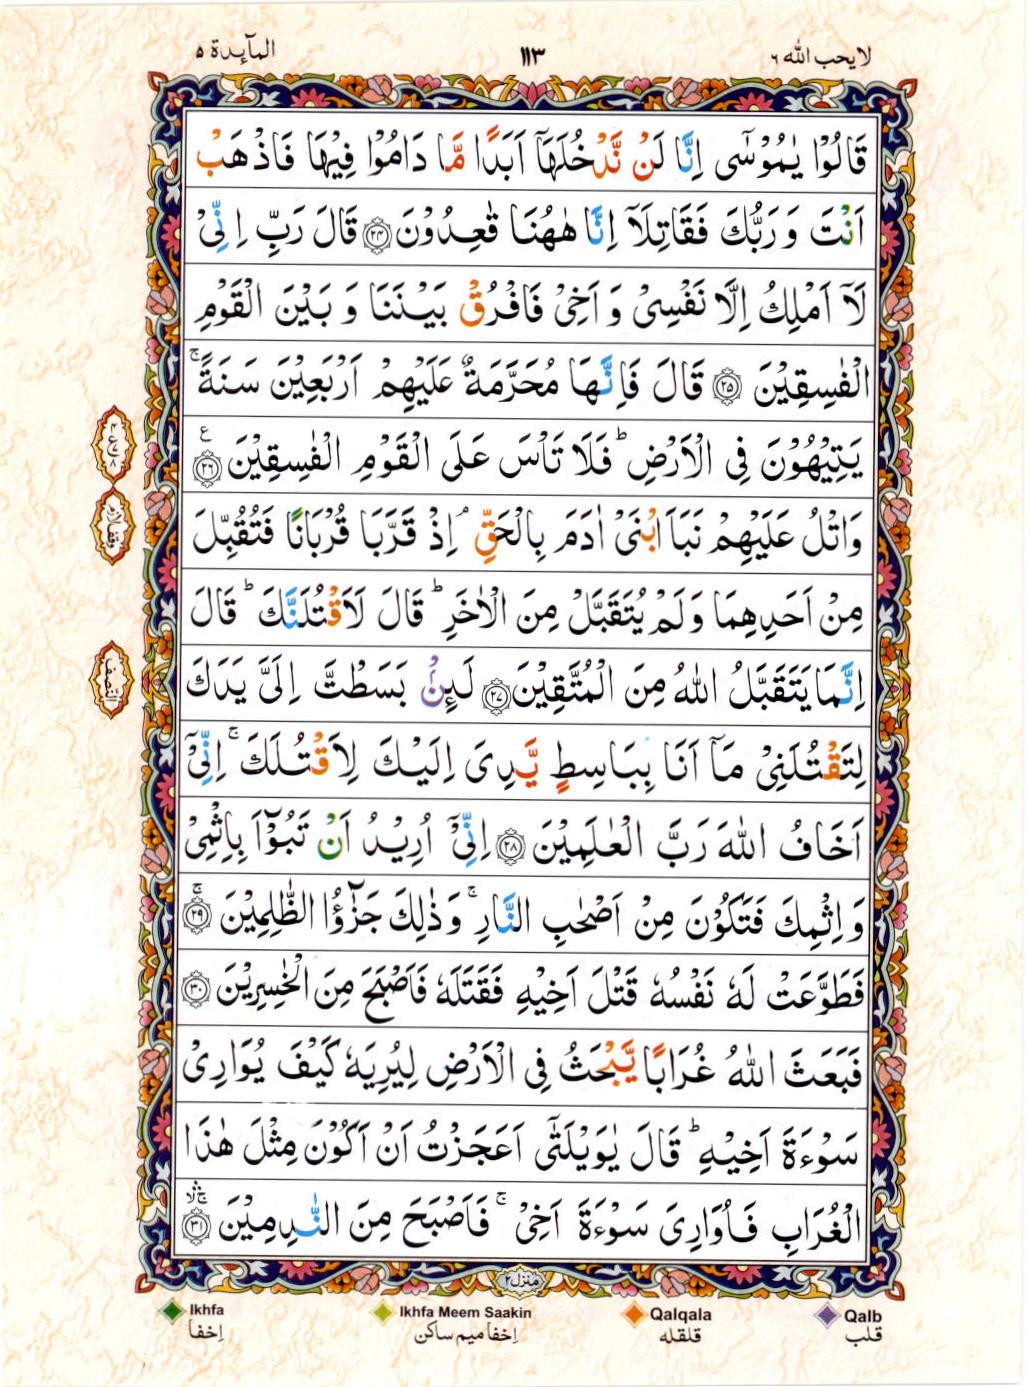 لا يحب الله ٦
١١٣
المآىٕدة ٥
قَالُوْا يٰمُوْسٰٓى اِنَّا لَنْ نَّدْخُلَهَاۤ اَبَدًا مَّا دَامُوْا فِيْهَا فَاذْهَبْ
اَنْتَ وَ رَبُّكَ فَقَاتِلَاۤ اِنَّا هٰهُنَا قٰعِدُوْنَ ﴿۲۴﴾ قَالَ رَبِّ اِنِّىْ
لَاۤ اَمْلِكُ اِلَّا نَفْسِىْ وَ اَخِىْ فَافْرُقْ بَيْنَنَا وَ بَيْنَ الْقَوْمِ
الْفٰسِقِيْنَ ﴿۲۵﴾ قَالَ فَاِنَّهَا مُحَرَّمَةٌ عَلَيْهِمْ اَرْبَعِيْنَ سَنَةً ۚ
يَتِيْهُوْنَ فِى الْاَرْضِ ؕ فَلَا تَاْسَ عَلَى الْقَوْمِ الْفٰسِقِيْنَ ﴿۲۶﴾ ع
وَاتْلُ عَلَيْهِمْ نَبَاَ ابْنَىْ اٰدَمَ بِالْحَقِّ ۘ اِذْ قَرَّبَا قُرْبَانًا فَتُقُبِّلَ
مِنْ اَحَدِهِمَا وَلَمْ يُتَقَبَّلْ مِنَ الْاٰخَرِ ؕ قَالَ لَاَقْتُلَنَّكَ ؕ قَالَ
اِنَّمَا يَتَقَبَّلُ اللهُ مِنَ الْمُتَّقِيْنَ ﴿۲۷﴾ لَىِٕنْۢ بَسَطْتَّ اِلَىَّ يَدَكَ
لِتَقْتُلَنِىْ مَاۤ اَنَا بِبَاسِطٍ يَّدِىَ اِلَيْكَ لِاَقْتُلَكَ ۚ اِنِّىْۤ
اَخَافُ اللهَ رَبَّ الْعٰلَمِيْنَ ﴿۲۸﴾ اِنِّىْۤ اُرِيْدُ اَنْ تَبُوْٓاَ بِاِثْمِىْ
وَ اِثْمِكَ فَتَكُوْنَ مِنْ اَصْحٰبِ النَّارِ ۚ وَذٰلِكَ جَزٰٓؤُا الظّٰلِمِيْنَ ۚ ﴿۲۹﴾
فَطَوَّعَتْ لَهٗ نَفْسُهٗ قَتْلَ اَخِيْهِ فَقَتَلَهٗ فَاَصْبَحَ مِنَ الْخٰسِرِيْنَ ﴿۳۰﴾
فَبَعَثَ اللهُ غُرَابًا يَّبْحَثُ فِى الْاَرْضِ لِيُرِيَهٗ كَيْفَ يُوَارِىْ
سَوْءَةَ اَخِيْهِ ؕ قَالَ يٰوَيْلَتٰٓى اَعَجَزْتُ اَنْ اَكُوْنَ مِثْلَ هٰذَا
الْغُرَابِ فَاُوَارِىَ سَوْءَةَ اَخِىْ ۚ فَاَصْبَحَ مِنَ النّٰدِمِيْنَ ۚ ۛ ۙ ﴿۳۱﴾
النّصف
منزل ٢
Ikhfa
Ikhfa Meem Saakin
Qalqala
Qalb
اِخفا
اِخفا میم ساکن
قلقله
قلب